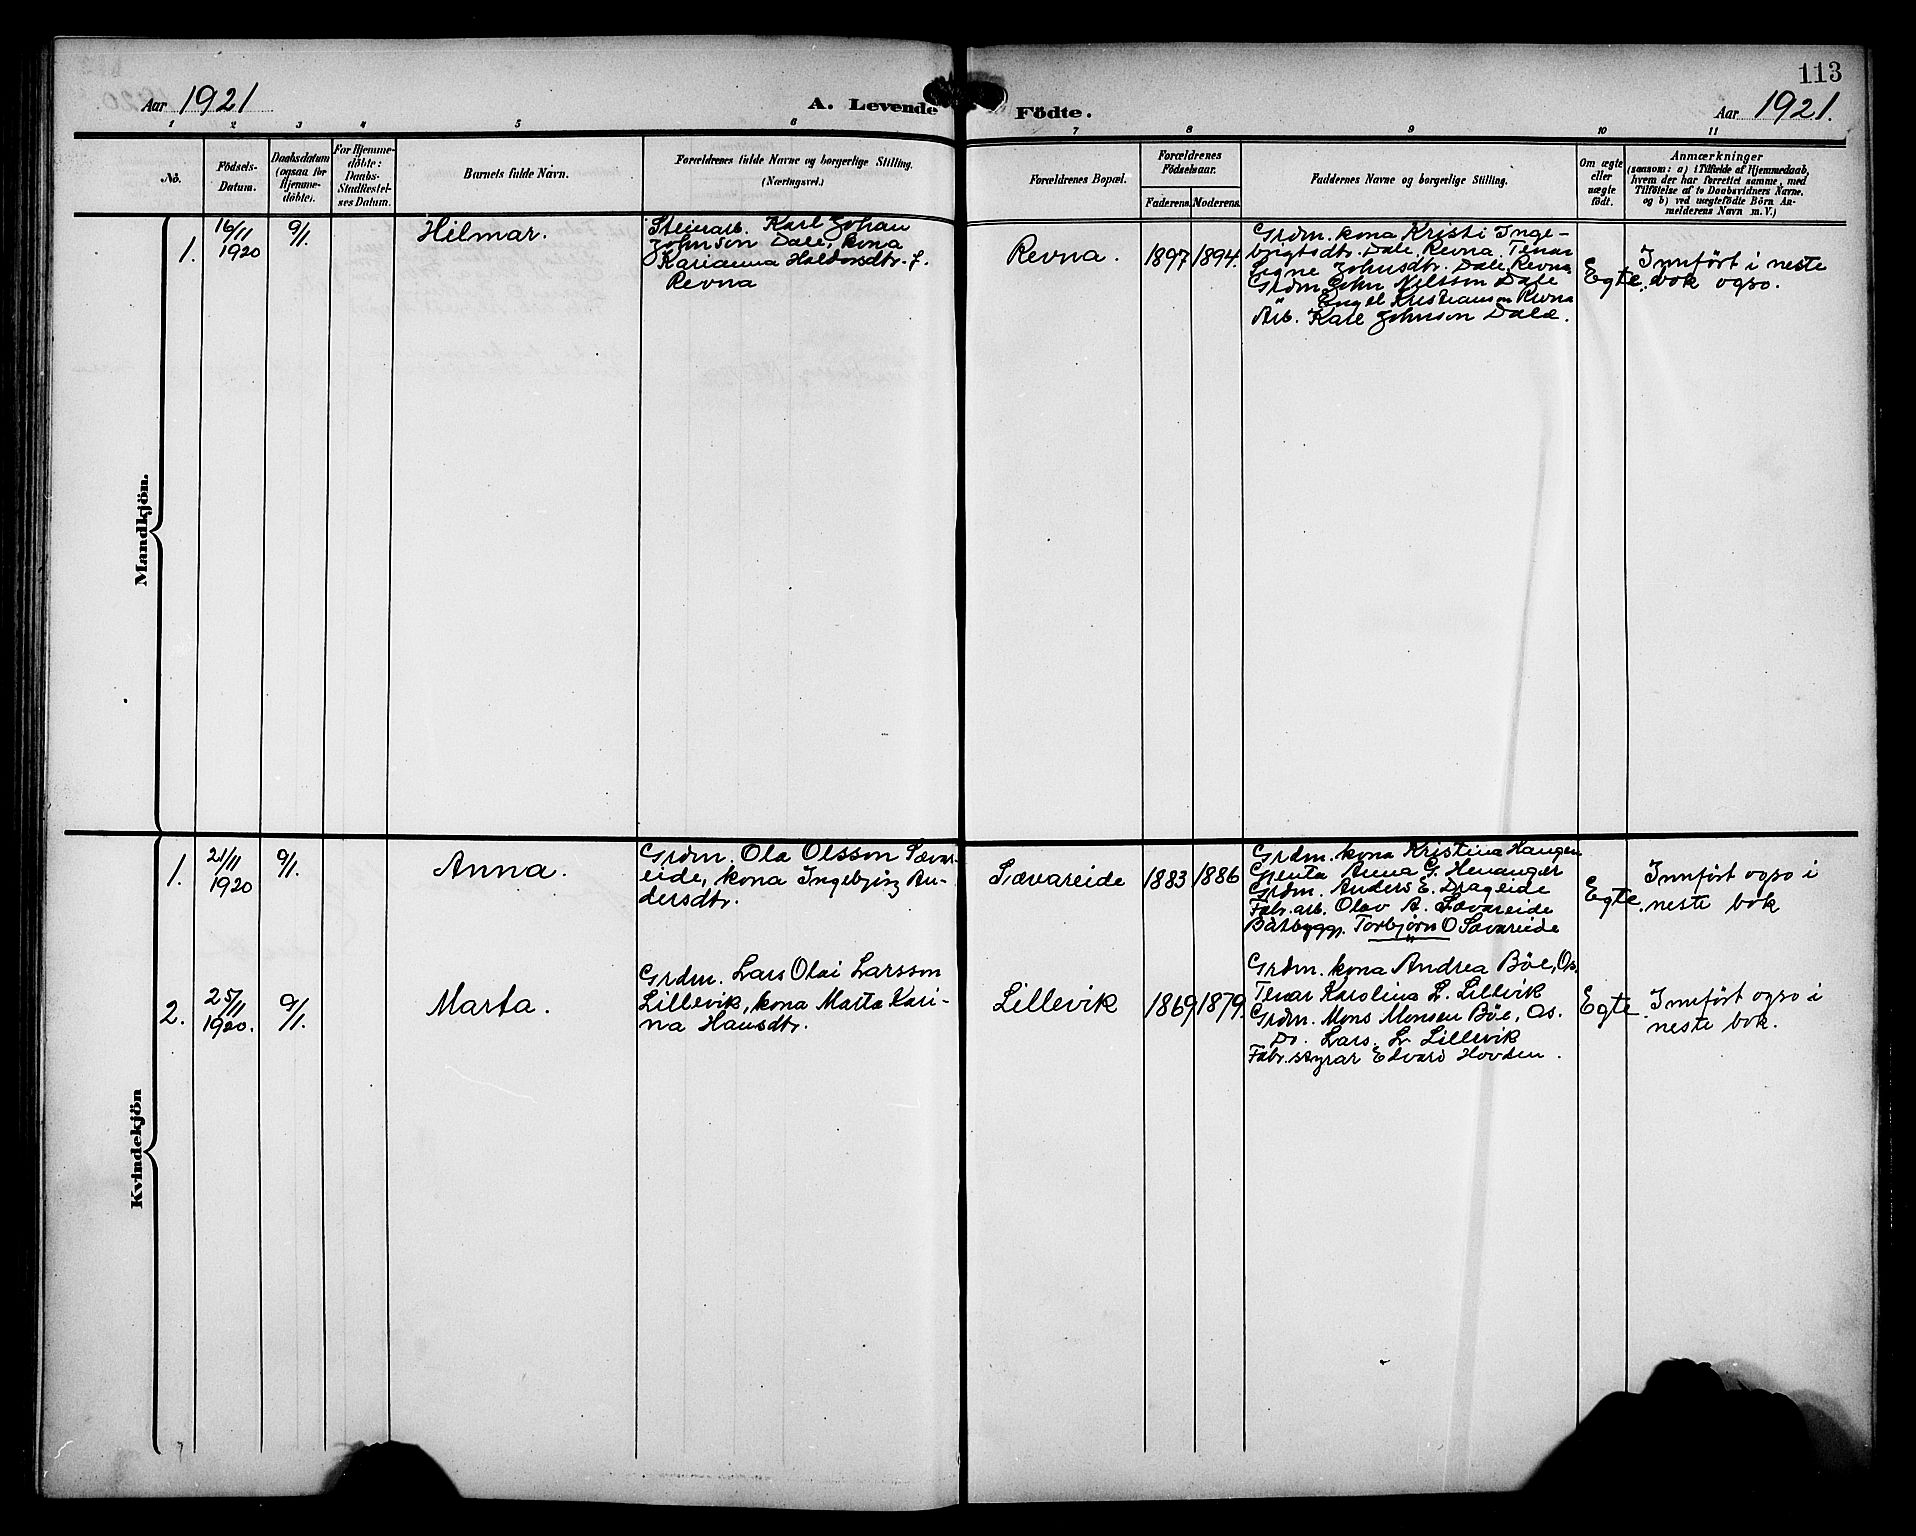 Aar 1921
A. Levende
Födte.
113
Aar 1921.
1 2 3 4 5 6 7 8 9 10 11
No.
Födsels-
Datum.
Daabsdatum
(ogsaa for
Hjemme-
döbte).
For Hjemme-
döbte:
Daabs-
Stadfæstel-
ses Datum.
Barnets fulde Navn.
Forældrenes fulde Navne og borgerlige Stilling.
(Næringsvei.)
Forældrenes Bopæl.
Forældrenes
Födselsaar.
Faderens. Moderens.
Faddernes Navne og borgerlige Stilling.
Om ægte
eller
uægte
födt.
Anmærkninger
(saasom: a) i Tilfælde af Hjemmedaab,
hvem der har forrettet samme, med
Tilföielse af to Daabsvidners Navne,
og b) ved uægtefödte Börn An-
melderens Navn m. V.)
Mandkjön.
1.
16/11
1920
9/1.
Hilmar.
Steinarb. Karl Johan
Johnson Dale, kona
Karianna Haldorsdtr. f.
Revna
Revna.
1897
1894.
Grdm. kona Kristi Inge-
bjrigtsdtr. Dale, Revna, Tenar
Signe Johnsdtr. Dale, Revna
Grdm. John Nilsson Dale
" Engel Kristianson Revna
Arb. Karl Johnson Dale.
Egte.
Innført i neste
bok ogso.
Kvindekjön
1.
21/11
1920
9/1.
Anna.
Grdm. Ola Olsson Sævar-
eide, kona Ingebjørg An-
dersdtr.
Sævareide
1883
1886
Grdm. kona Kristina Haugen
Gjenta Anna G. Henanger
Grdm. Anders E. Drageide
Fabr. arb. Olav A. Sævareide
Båtbygg. Torbjørn O Sævareide
Egte.
Innført ogso i
neste bok
2.
25/11
1920.
9/1.
Marta.
Grdm. Lars Olai Larsson
Lillevik, kona Marta Kari-
na Hansdtr.
Lillevik
1869
1879.
Grdm. kona Andrea Böe, Os.
Tenar Karolina L. Lillevik
Grdm. Mons Monsen Böe, Os.
Do. Lars. L. Lillevik
Fabr. styrar Edvard Hovden.
Egte.
Innført ogso i
neste bok.